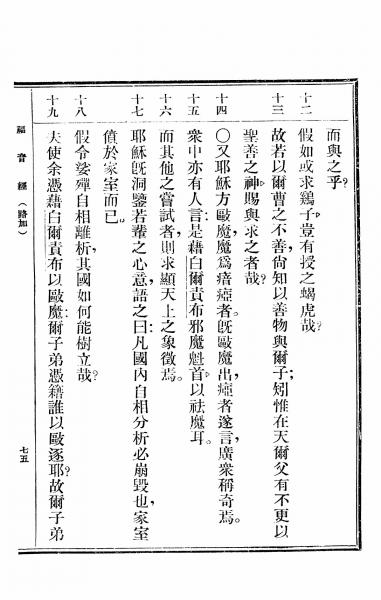 而與之乎?
十二 假如或求鷄子,豈有授之蝎虎哉?
十三 故若以爾曹之不善,尚知以善物與爾子;矧惟在天爾父有不更以
聖善之神,賜與求之者哉?
十四 ○又耶穌方敺魔,魔爲瘖瘂者。旣敺魔出,瘂者遂言,廣衆稱奇焉。
十五 衆中亦有人言:是藉白爾責布邪魔魁首以祛魔耳。
十六 而其他之嘗試者,則求顯天上之象徵焉。
十七 耶穌旣洞鑒若輩之心意,語之曰:凡國內自相分析必崩毀也,家室
僨於家室而已。
十八 假令娑殫自相離析,其國如何能樹立哉?
十九 夫使余憑藉白爾責布以敺魔:爾子弟憑籍誰以敺逐耶?故爾子弟
福音經(路加)
七五